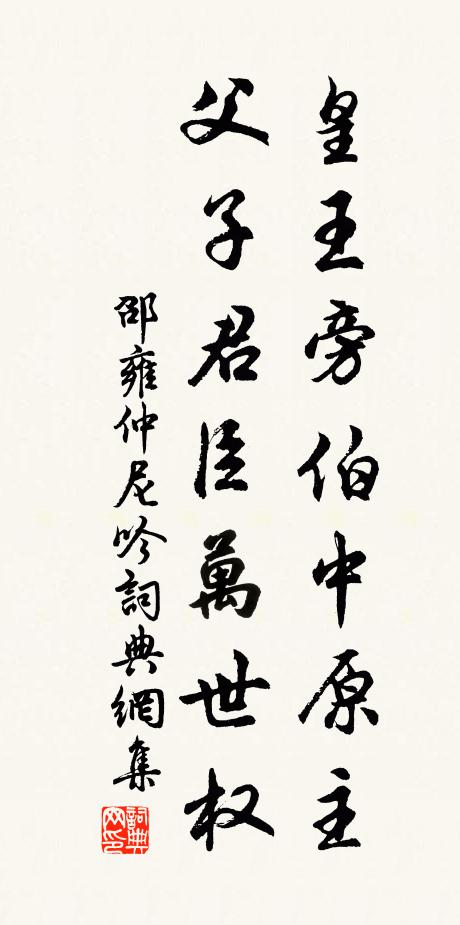 皇王帝伯中原主
父子君臣萬世权
邵雍仲尼吟詞典網集
詞典网印